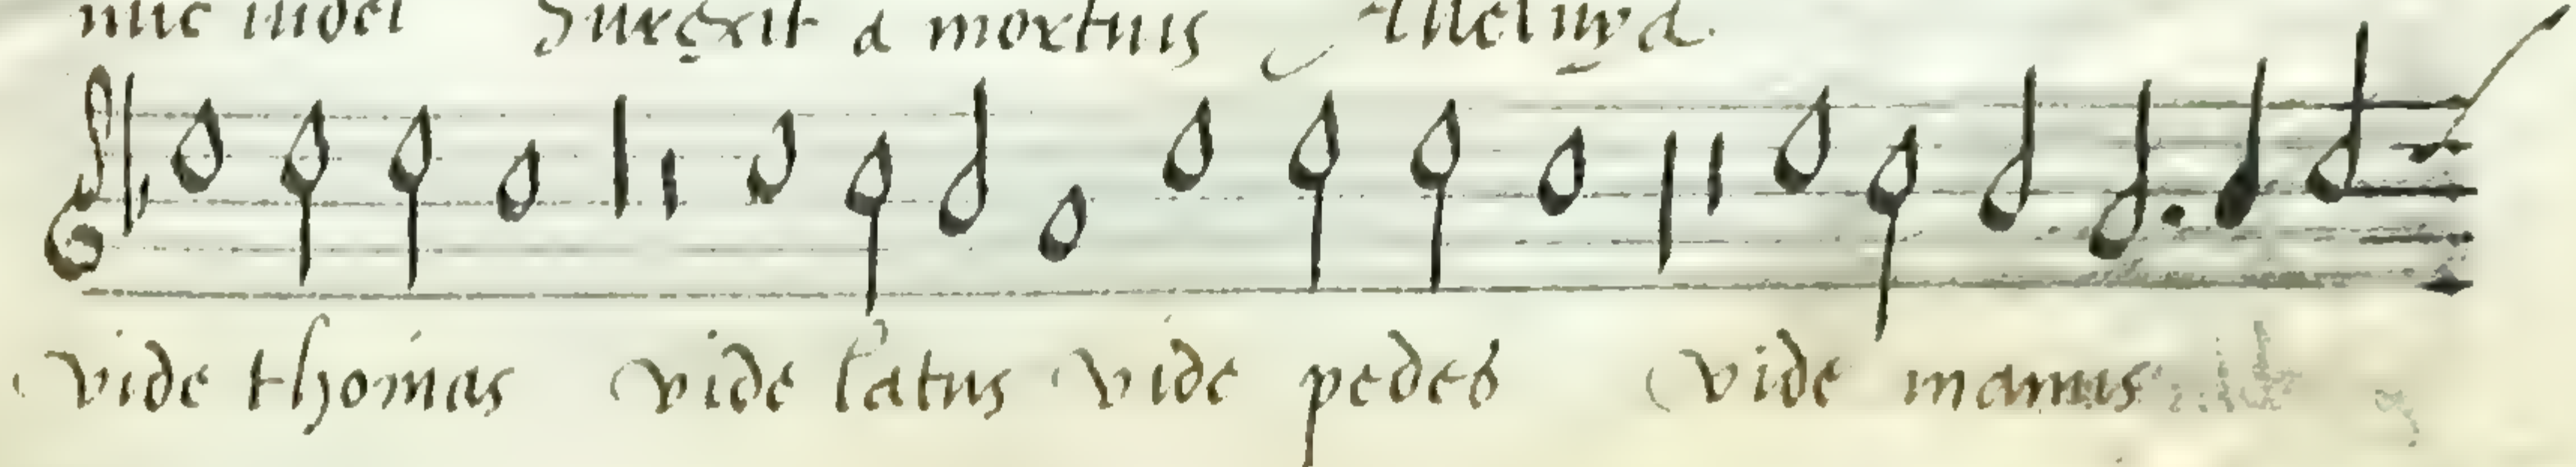 Surexit a mortuis Alleluya.
vide thomas vide latus vide pedes vide manus